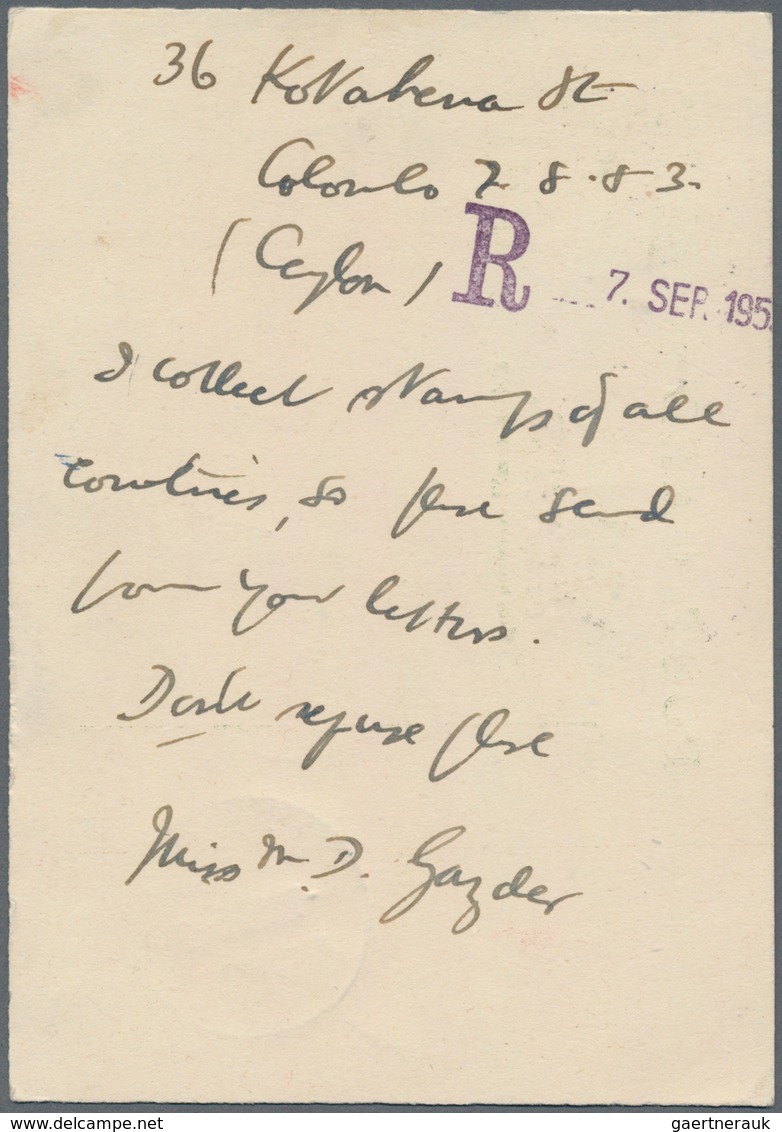 36 Kotahena St
Colombo 7 8.8.53.
(Ceylon)
R 7. SEP. 195
I collect stamps of all
countries, so please send
from your letters.
Don't refuse please
Miss M. D. Gazder
gaertnerauk